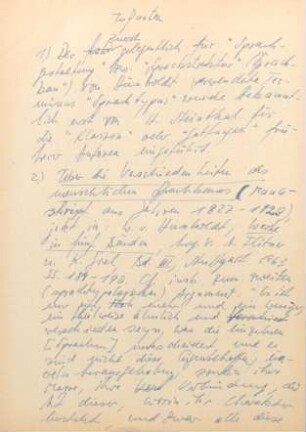 1) Der zuvor gelegentlich für "Sprach-
gestaltung" bzw. "
bau") von Humboldt verwendete Ter-
minus "Sprachtypus" wurde bekannt-
lich erst von H. Steinthal für
die "Klassen" oder "Gattungen" frü-
herer Autoren eingeführt.
2) Über die Verschiedenheiten des
menschlichen Sprachbaues (Manu-
skript aus Jahren 1827-1829),
jetzt in: W. v. Humboldt, Werke
in fünf Bänden, hrg. v. A. Flitner
u. K. Giel, Bd. III, Stuttgart 1963
SS. 189-
(sprachtypologischen) Argument: "
mehr und ein weniger,
ein theilweise ähnlich und
verschieden seyn, was die einzelnen
[Sprachen] unterscheidet, und es
sind nicht diese Eigenschaften,
herausgehoben, sondern ihre
Masse, ihre Verbindung, die
Art dieser, worin ihr Charakter
besteht, und zwar alle diese